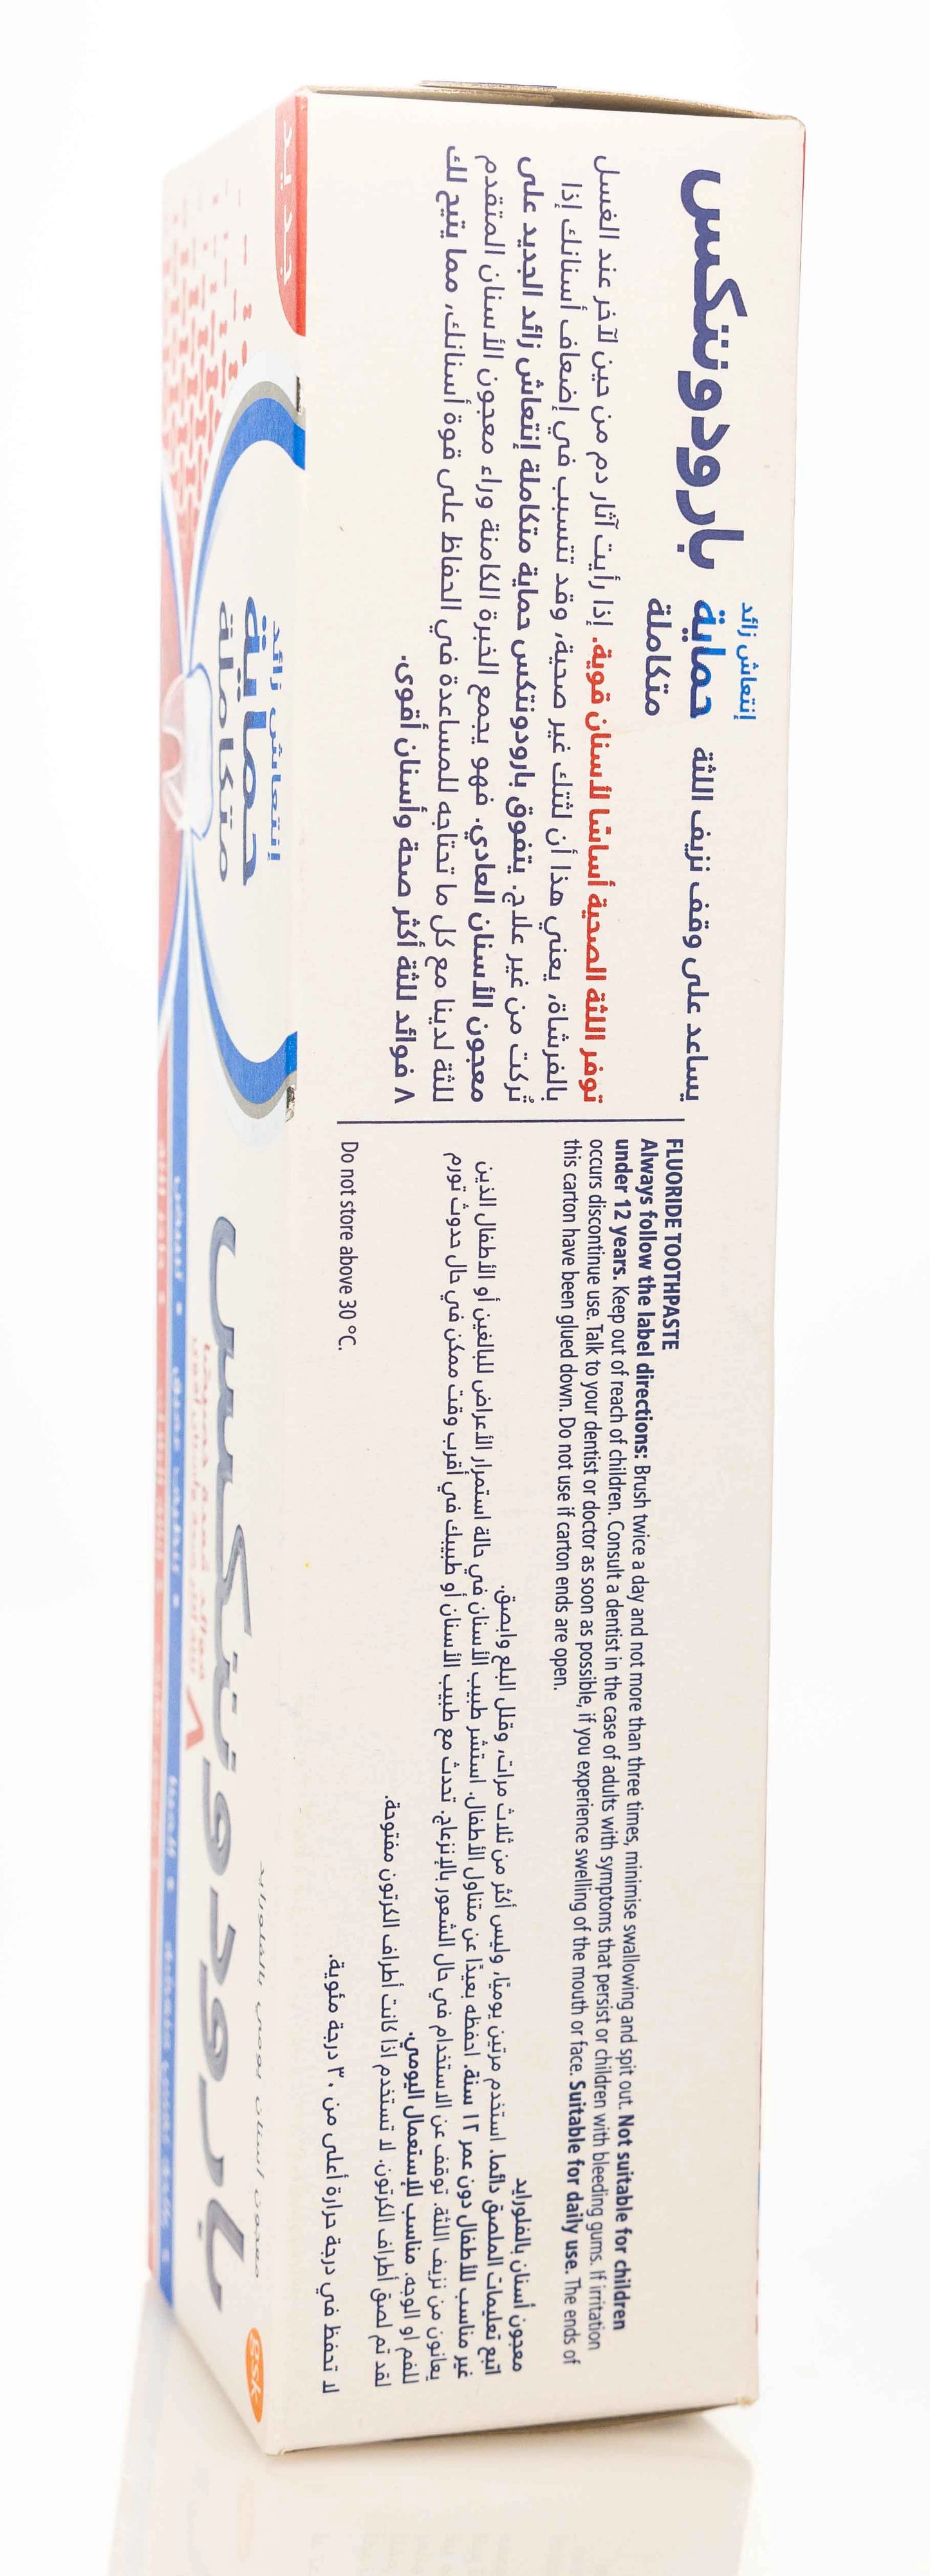 بارودونتكس
إنتعاش زائد
حماية
متكاملة
يساعد على وقف نزيف اللثة
توفر اللثة الصحية أساسًا لأسنان قوية. إذا رأيت آثار دم من حين لآخر عند الغسل
بالفرشاة، يعني هذا أن لثتك غير صحية، وقد تتسبب في إضعاف أسنانك إذا
تُركت من غير علاج. يتفوق بارودونتكس حماية متكاملة إنتعاش زائد الجديد على
معجون الأسنان العادي. فهو يجمع الخبرة الكامنة وراء معجون الأسنان المتقدم
للثة لدينا مع كل ما تحتاجه للمساعدة في الحفاظ على قوة أسنانك، مما يتيح لك
٨ فوائد للثة أكثر صحة وأسنان أقوى.
FLUORIDE TOOTHPASTE
Always follow the label directions: Brush twice a day and not more than three times, minimise swallowing and spit out. Not suitable for children
under 12 years. Keep out of reach of children. Consult a dentist in the case of adults with symptoms that persist or children with bleeding gums. If irritation
occurs discontinue use. Talk to your dentist or doctor as soon as possible, if you experience swelling of the mouth or face. Suitable for daily use. The ends of
this carton have been glued down. Do not use if carton ends are open.
معجون أسنان بالفلورايد
اتبع تعليمات الملصق دائما. استخدم مرتين يوميًا، وليس أكثر من ثلاث مرات، وقلل البلع وابصق.
غير مناسب للأطفال دون عمر ١٢ سنة. احفظه بعيدًا عن متناول الأطفال. استشر طبيب الأسنان في حالة استمرار الأعراض للبالغين أو الأطفال الذين
يعانون من نزيف اللثة. توقف عن الاستخدام في حال الشعور بالإنزعاج. تحدث مع طبيب الأسنان أو طبيبك في أقرب وقت ممكن في حال حدوث تورم
للفم او الوجه. مناسب للإستعمال اليومي.
لقد تم لصق أطراف الكرتون. لا تستخدم اذا كانت أطراف الكرتون مفتوحة.
Do not store above 30 °C.
لا تحفظ في درجة حرارة أعلى من ٣٠ درجة مئوية.
جديد
إنتعاش زائد
حماية
متكاملة
معجون أسنان يومي بالفلورايد
بارودونتكس
٨
gsk